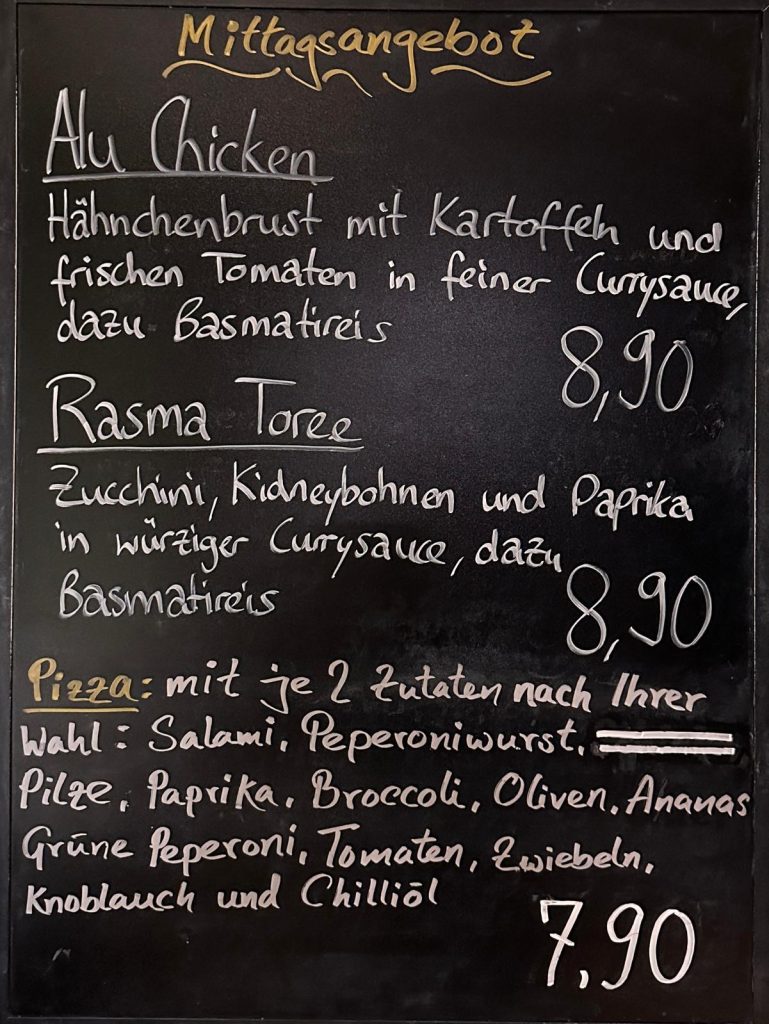 Mittagsangebot
Alu Chicken
Hähnchenbrust mit Kartoffeln und
frischen Tomaten in feiner Currysauce,
dazu Basmatireis
8,90
Rasma Toree
Zucchini, Kidneybohnen und Paprika
in würziger Currysauce, dazu
Basmatireis
8,90
Pizza: mit je 2 Zutaten nach Ihrer
Wahl: Salami, Peperoniwurst,
Pilze, Paprika, Broccoli, Oliven, Ananas
Grüne Peperoni, Tomaten, Zwiebeln,
Knoblauch und Chilliöl
7,90